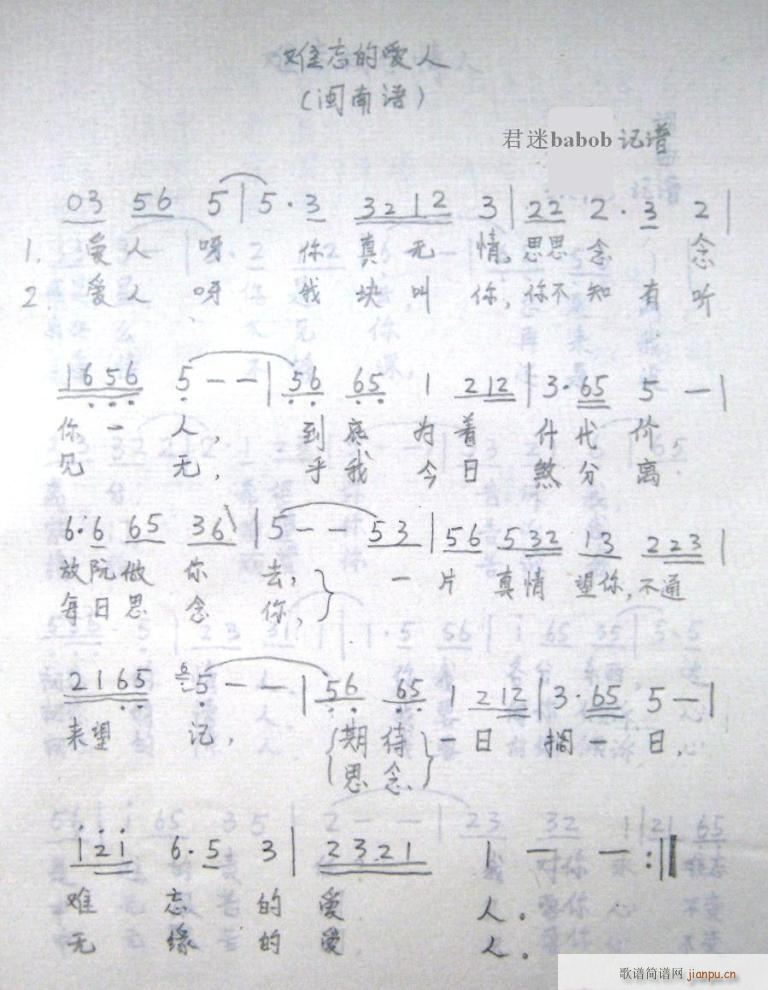 难忘的爱人
（闽南语）
君迷babob 记谱
03 56 5 | 5 · 3 3212 3 | 22 2 · 3 2 |
1. 爱人 呀 你 真 无 情, 思思 念 念
2. 爱人 呀 我 块 叫 你, 你不 知 有 听
1656 5 — — | 56 65 1 212 | 3 · 65 5 — |
你 一 人, 到 底 为 着 什 代 价
见 无, 乎 我 今 日 煞 分 离
6 · 6 65 36 | 5 — — 53 | 56 532 13 223 |
放阮做 你 去, 一 片 真情 望你, 不通
每日思 念 你,
2165 5 — — | 56 65 1 212 | 3 · 65 5 — |
来望 记, 期待 一 日 搁 一 日,
思念
121 6 · 5 3 | 2321 1 — — :‖
难 忘 的 爱 人.
无 缘 的 爱 人.
歌谱简谱网 jianpu.cn